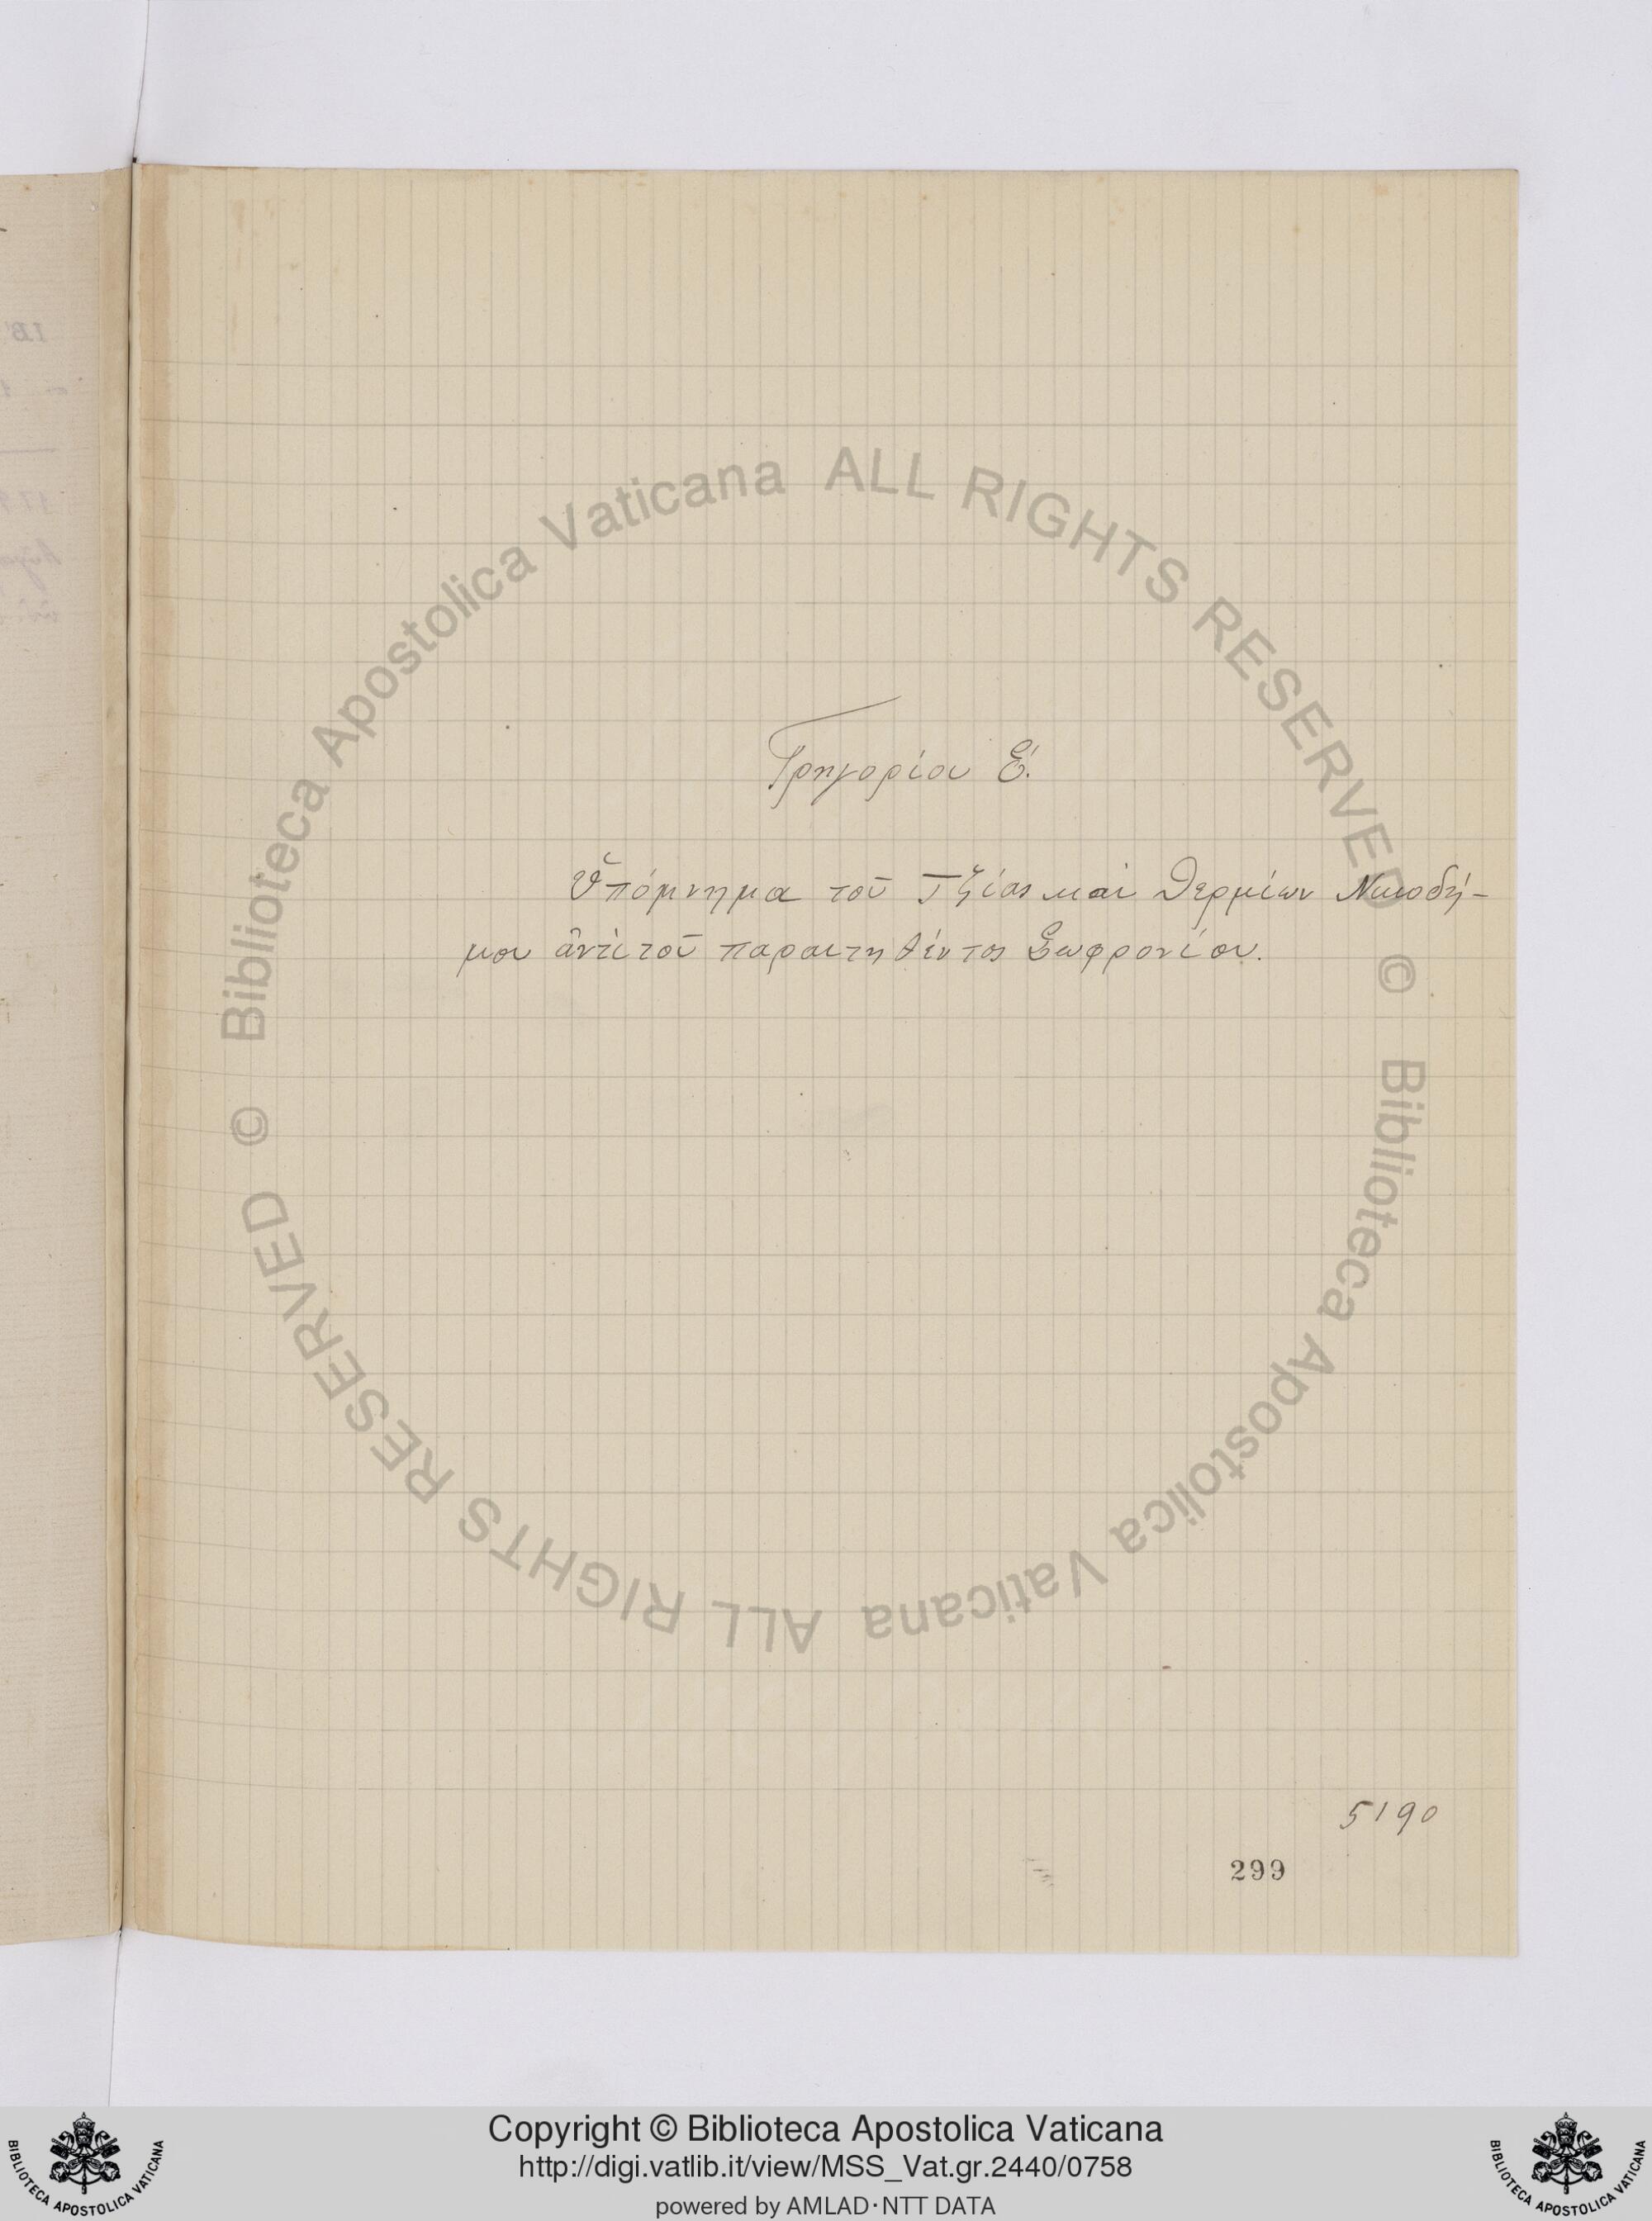 Γρηγορίου Ε΄.
Ὑπόμνημα τοῦ Τζίας καὶ Θερμίων Νικοδή-
μου ἀντὶ τοῦ παραιτηθέντος Σωφρονίου.
5190
299
© Biblioteca Apostolica Vaticana ALL RIGHTS RESERVED
© Biblioteca Apostolica Vaticana ALL RIGHTS RESERVED
Copyright © Biblioteca Apostolica Vaticana
http://digi.vatlib.it/view/MSS_Vat.gr.2440/0758
powered by AMLAD·NTT DATA
BIBLIOTECA APOSTOLICA VATICANA
BIBLIOTECA APOSTOLICA VATICANA